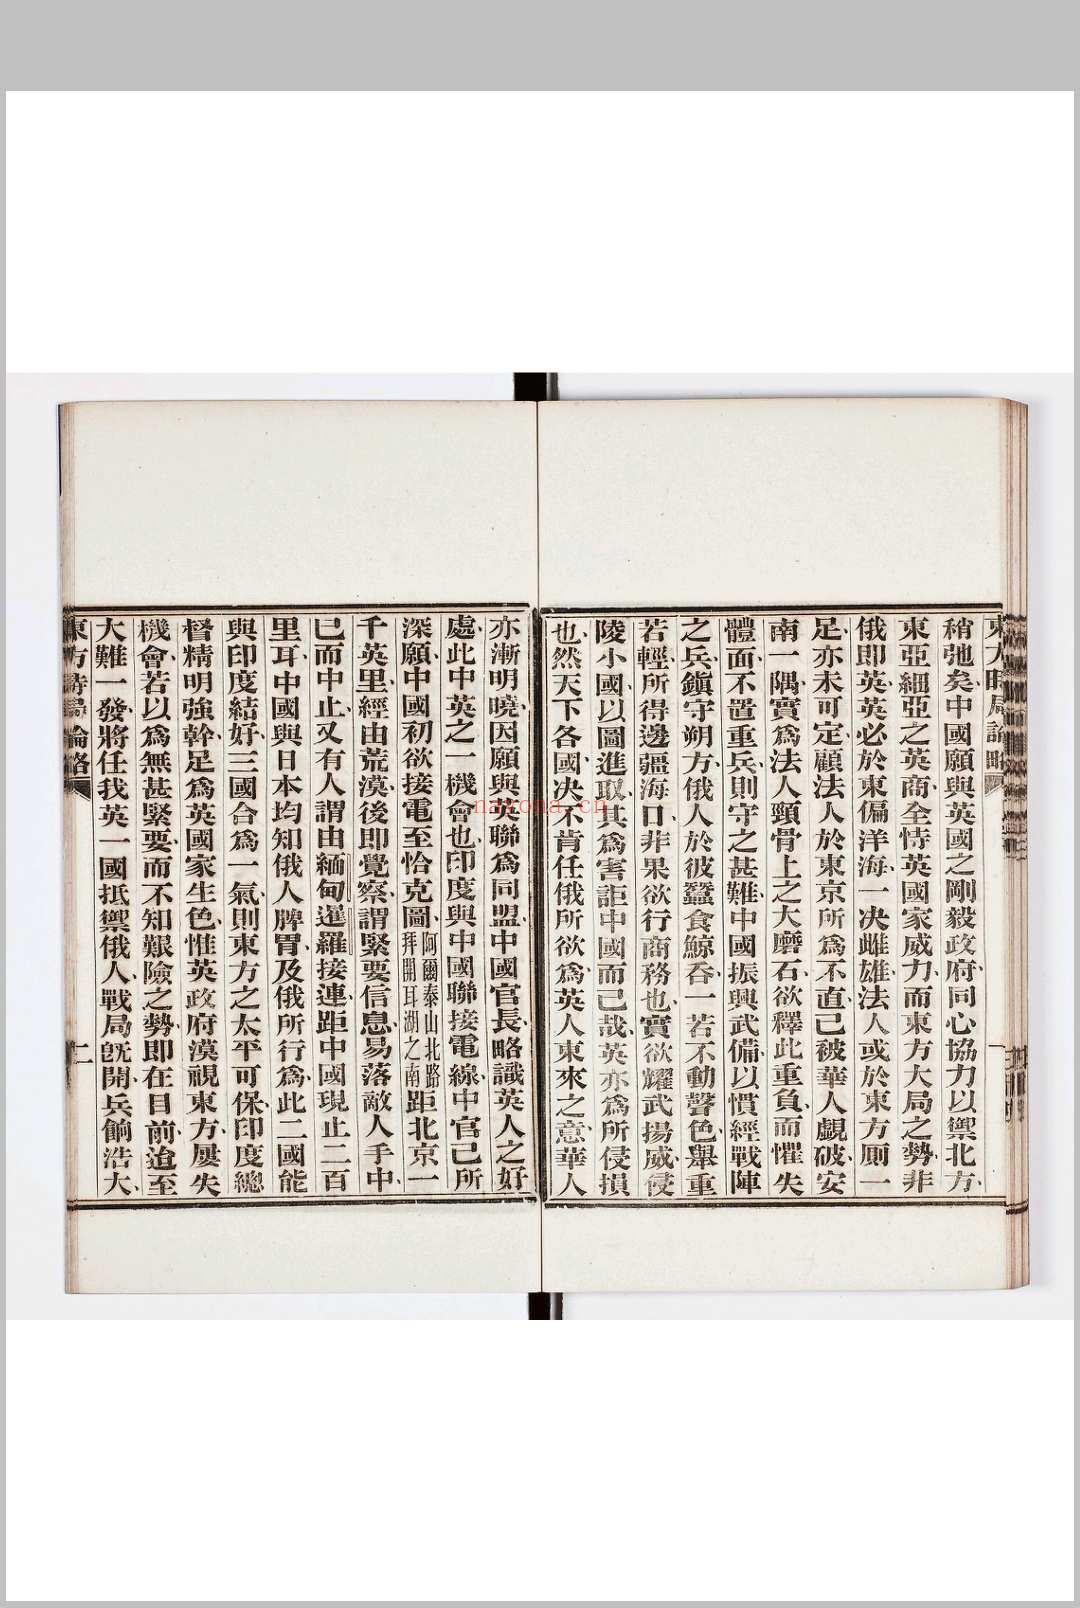 稍弛矣、中國願與英國之剛毅政府、同心協力、以禦北方、
東亞細亞之英商、全恃英國家威力、而東方大局之勢、非
俄即英、英必於東偏洋海、一决雌雄、法人或於東方厠一
足、亦未可定、顧法人於東京所爲不直、已被華人覷破、安
南一隅、實爲法人頸骨上之大磨石、欲釋此重負、而懼失
體面、不置重兵、則守之甚難、中國振興武備、以慣經戰陣
之兵、鎭守朔方、俄人於彼蠶食鯨呑、一若不動聲色、舉重
若輕、所得邊疆海口、非果欲行商務也、實欲耀武揚威、侵
陵小國、以圖進取、其爲害詎中國而已哉、英亦爲所侵損
也、然天下各國、决不肯任俄所欲爲、英人東來之意、華人
亦漸明曉、因願與英聯爲同盟、中國官長、略識英人之好
處、此中英之一機會也、印度與中國聯接電線、中官已所
深願、中國初欲接電至恰克圖、阿爾泰山北路拜開耳湖之南距北京一
千英里、經由荒漠、後即覺察、謂緊要信息、易落敵人手中、
已而中止、又有人謂由緬甸暹羅接連、距中國現止二百
里耳、中國與日本均知俄人脾胃、及俄所行爲、此二國能
與印度結好、三國合爲一氣、則東方之太平可保、印度總
督精明強幹、足爲英國家生色、惟英政府漠視東方、屢失
機會、若以爲無甚緊要、而不知艱險之勢、即在目前、迨至
大難一發、將任我英一國抵禦俄人、戰局旣開、兵餉浩大、
東方時局論略
二